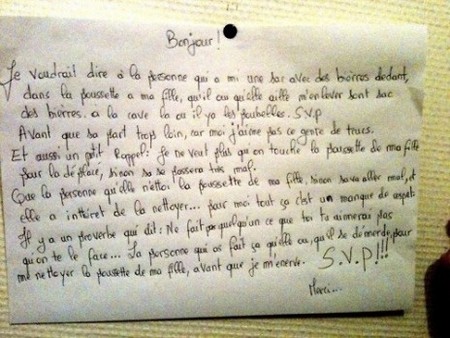 Bonjour !
Je voudrait dire à la personne qui a mi une sac avec des bières dedant,
dans la poussette a ma fille, qu'il ou qu'elle aille m'enlever sont sac
des bières. a la cave la ou il ya les poubelles. S.V.P
Avant que sa part trop loin, car moi j'aime pas ce genre de trucs.
Et aussi un ptit Rappel: Je ne veut plus qu'on touche la poussette de ma fille
pour la déplacé, sinon sa se passera très mal.
Que la personne qu'elle nettoi la poussette de ma fille, sinon sava aller mal, et
elle a intéret de la nettoyer... pour moi tout ça c'est un manque de aspet.
Il y a un proverbe qui dit: Ne fait pas quelqu'un ce que toi tu aimerai pas
qu'on te le face... La personne qui as fait ça qu'elle ou, qu'il se démerde, pour
me nettoyer la poussette de ma fille, avant que je m'énerve. S.V.P!!!
Merci...